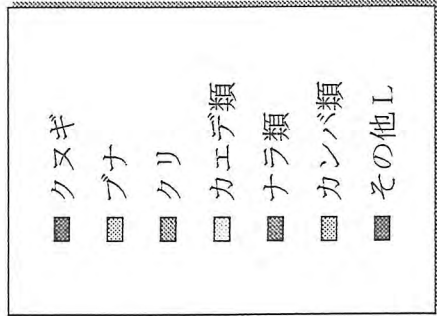 クヌギ
ブナ
クリ
カエデ類
ナラ類
カンバ類
その他L